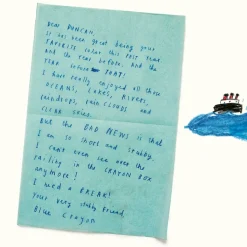 DEAR DUNCAN,
It has been great being your
FAVORITE color this past year.
and the year before. And the
YEAR before THAT!
I have really enjoyed all those
OCEANS, LAKES, RIVERS,
RAINDROPS, RAIN CLOUDS and
CLEAR skies.
But the BAD NEWS is that
I am so short and stubby,
I can't even see over the
railing in the CRAYON BOX
anymore!
I need a BREAK!
Your very stubby friend,
Blue Crayon